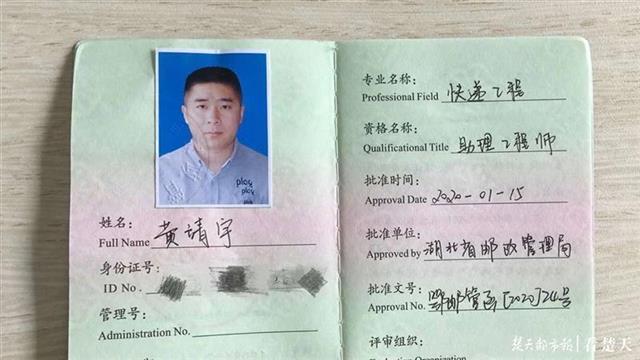 ploy
ploy
姓名:
Full Name 黄靖宇
身份证号:
ID No.
管理号:
Administration No.
专业名称:
Professional Field 快递工程
资格名称:
Qualificational Title 助理工程师
批准时间:
Approval Date 2020-01-15
批准单位:
Approved by 湖北省邮政管理局
批准文号:
Approval No. 鄂邮管函[2020]24号
评审组织:
Evaluation Organization
楚天都市报 | 看楚天